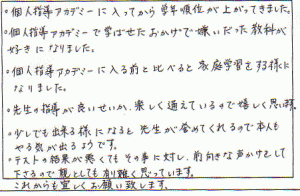 ・個人指導アカデミーに入ってから学年順位が上がってきました。
・個人指導アカデミーで学ばせたおかげで嫌いだった教科が
好きになりました。
・個人指導アカデミーに入る前と比べると家庭学習をする様に
なりました。
・先生の指導が良いせいか、楽しく通えているので嬉しく思います。
・少しでも出来る様になると先生が誉めてくれるので本人も
やる気が出るようです。
・テストの結果が悪くてもその事に対し、前向きな声かけをして
下さるので親としても有り難く思っています。
これからも宜しくお願い致します。